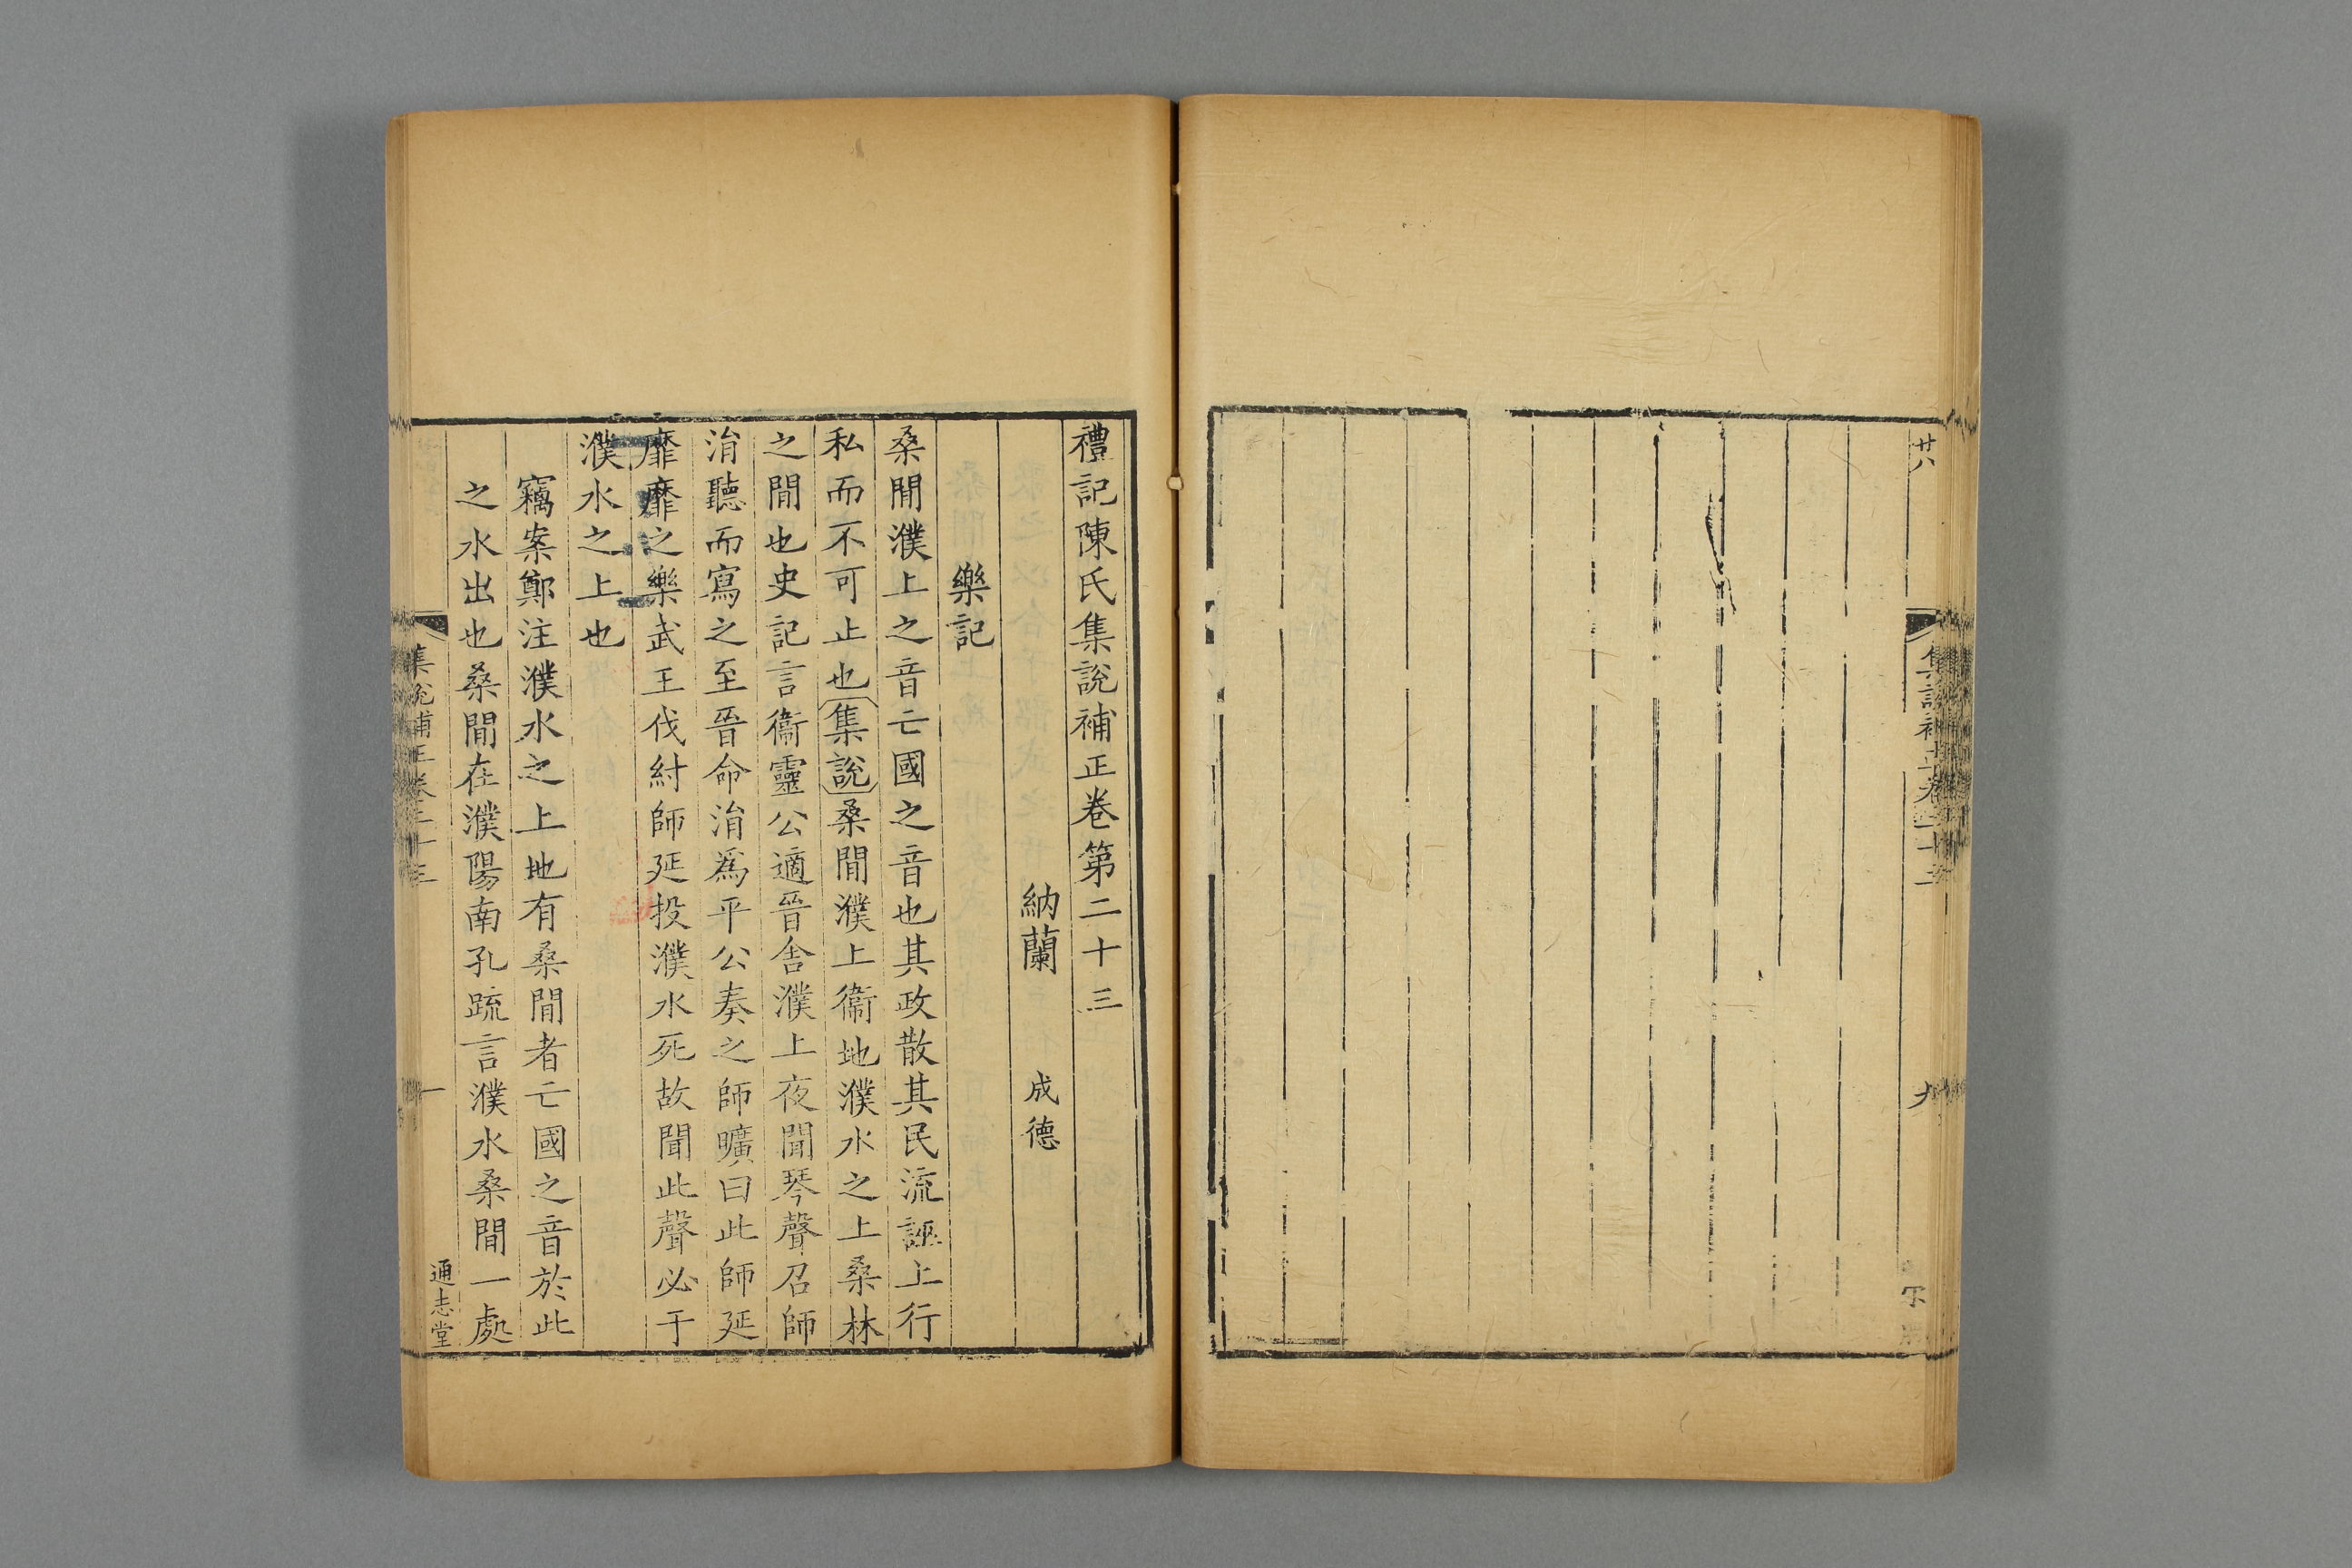 廿八
九
禮記陳氏集說補正卷第二十三
納蘭 成德
樂記
桑間濮上之音亡國之音也其政散其民流誣上行
私而不可止也集說桑間濮上衞地濮水之上桑林
之間也史記言衞靈公適晉舎濮上夜聞琴聲召師
涓聽而寫之至晉命涓爲平公奏之師曠曰此師延
靡靡之樂武王伐紂師延投濮水死故聞此聲必于
濮水之上也
竊案鄭注濮水之上地有桑間者亡國之音於此
之水出也桑間在濮陽南孔疏言濮水桑間一處
集說補正卷二十三
一
通志堂